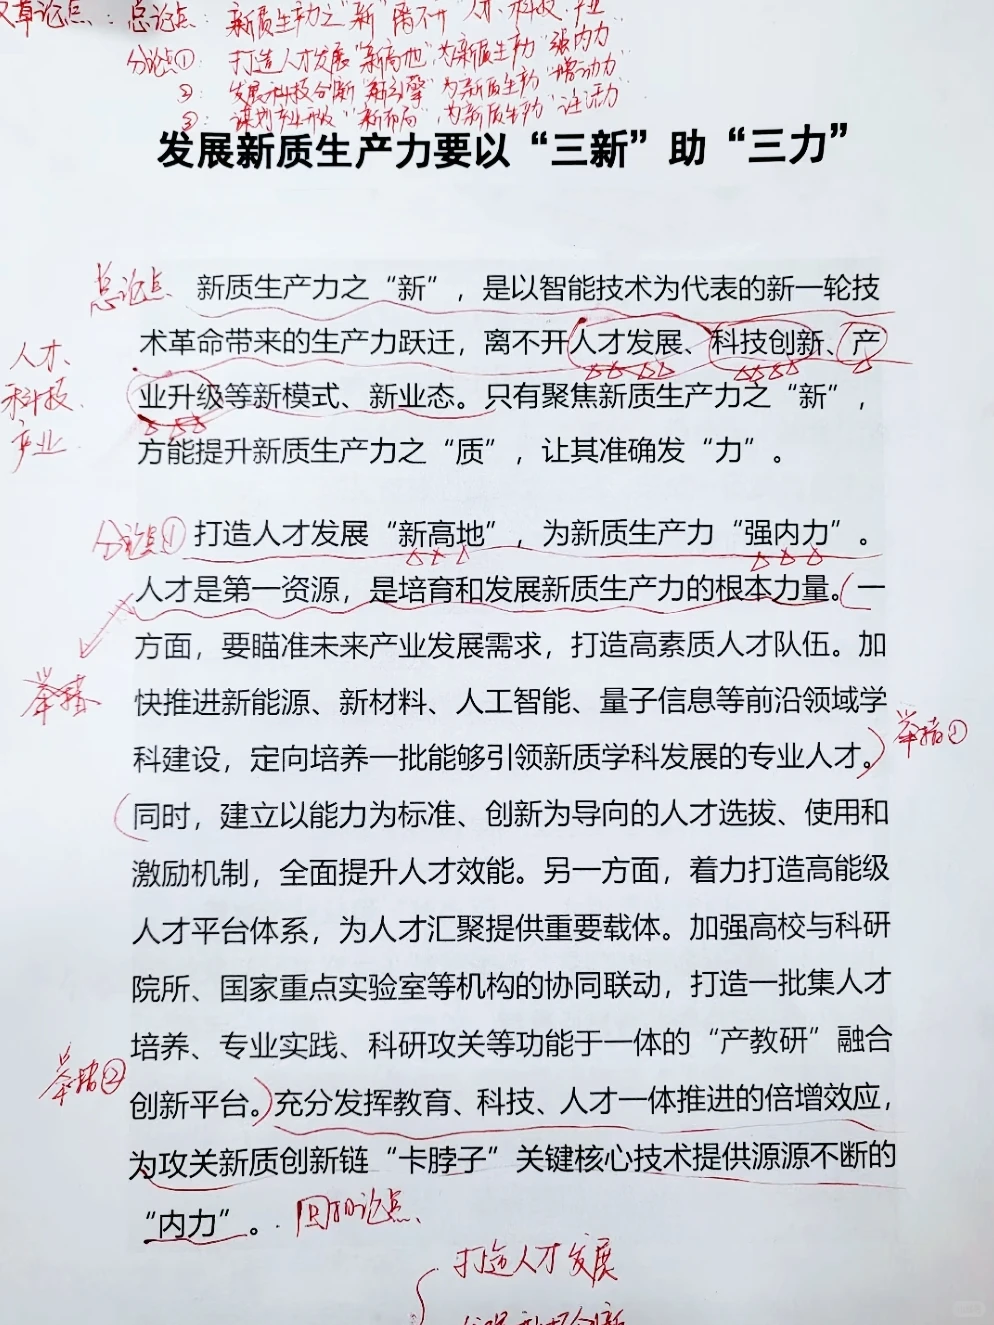 文章论点：总论点：新质生产力之“新”离不开人才、科技、产业
分论点①：打造人才发展“新高地”为新质生产力“强内力”
②：发展科技创新“新引擎”为新质生产力“增动力”
③：谋划产业升级“新布局”，为新质生产力“注活力”
发展新质生产力要以“三新”助“三力”
总论点
新质生产力之“新”，是以智能技术为代表的新一轮技
术革命带来的生产力跃迁，离不开人才发展、科技创新、产
业升级等新模式、新业态。只有聚焦新质生产力之“新”，
方能提升新质生产力之“质”，让其准确发“力”。
人才、
科技、
产业
分论点①
打造人才发展“新高地”，为新质生产力“强内力”。
人才是第一资源，是培育和发展新质生产力的根本力量。一
方面，要瞄准未来产业发展需求，打造高素质人才队伍。加
快推进新能源、新材料、人工智能、量子信息等前沿领域学
科建设，定向培养一批能够引领新质学科发展的专业人才。
举措①
同时，建立以能力为标准、创新为导向的人才选拔、使用和
激励机制，全面提升人才效能。另一方面，着力打造高能级
人才平台体系，为人才汇聚提供重要载体。加强高校与科研
院所、国家重点实验室等机构的协同联动，打造一批集人才
培养、专业实践、科研攻关等功能于一体的“产教研”融合
举措②
创新平台。充分发挥教育、科技、人才一体推进的倍增效应，
为攻关新质创新链“卡脖子”关键核心技术提供源源不断的
“内力”。
回扣论点
打造人才发展